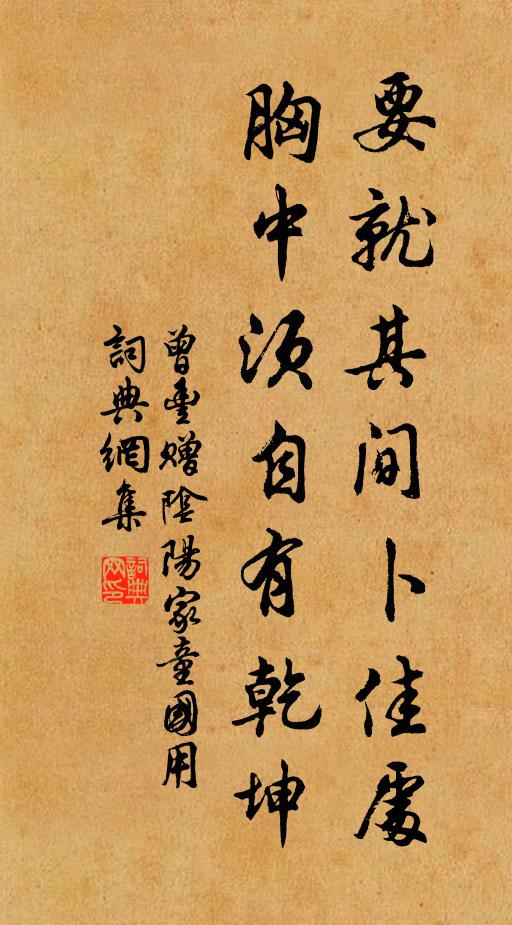 要就其间卜佳處
胸中须自有乾坤
曾豊贈陰陽家童國用
詞典網集
詞典网印